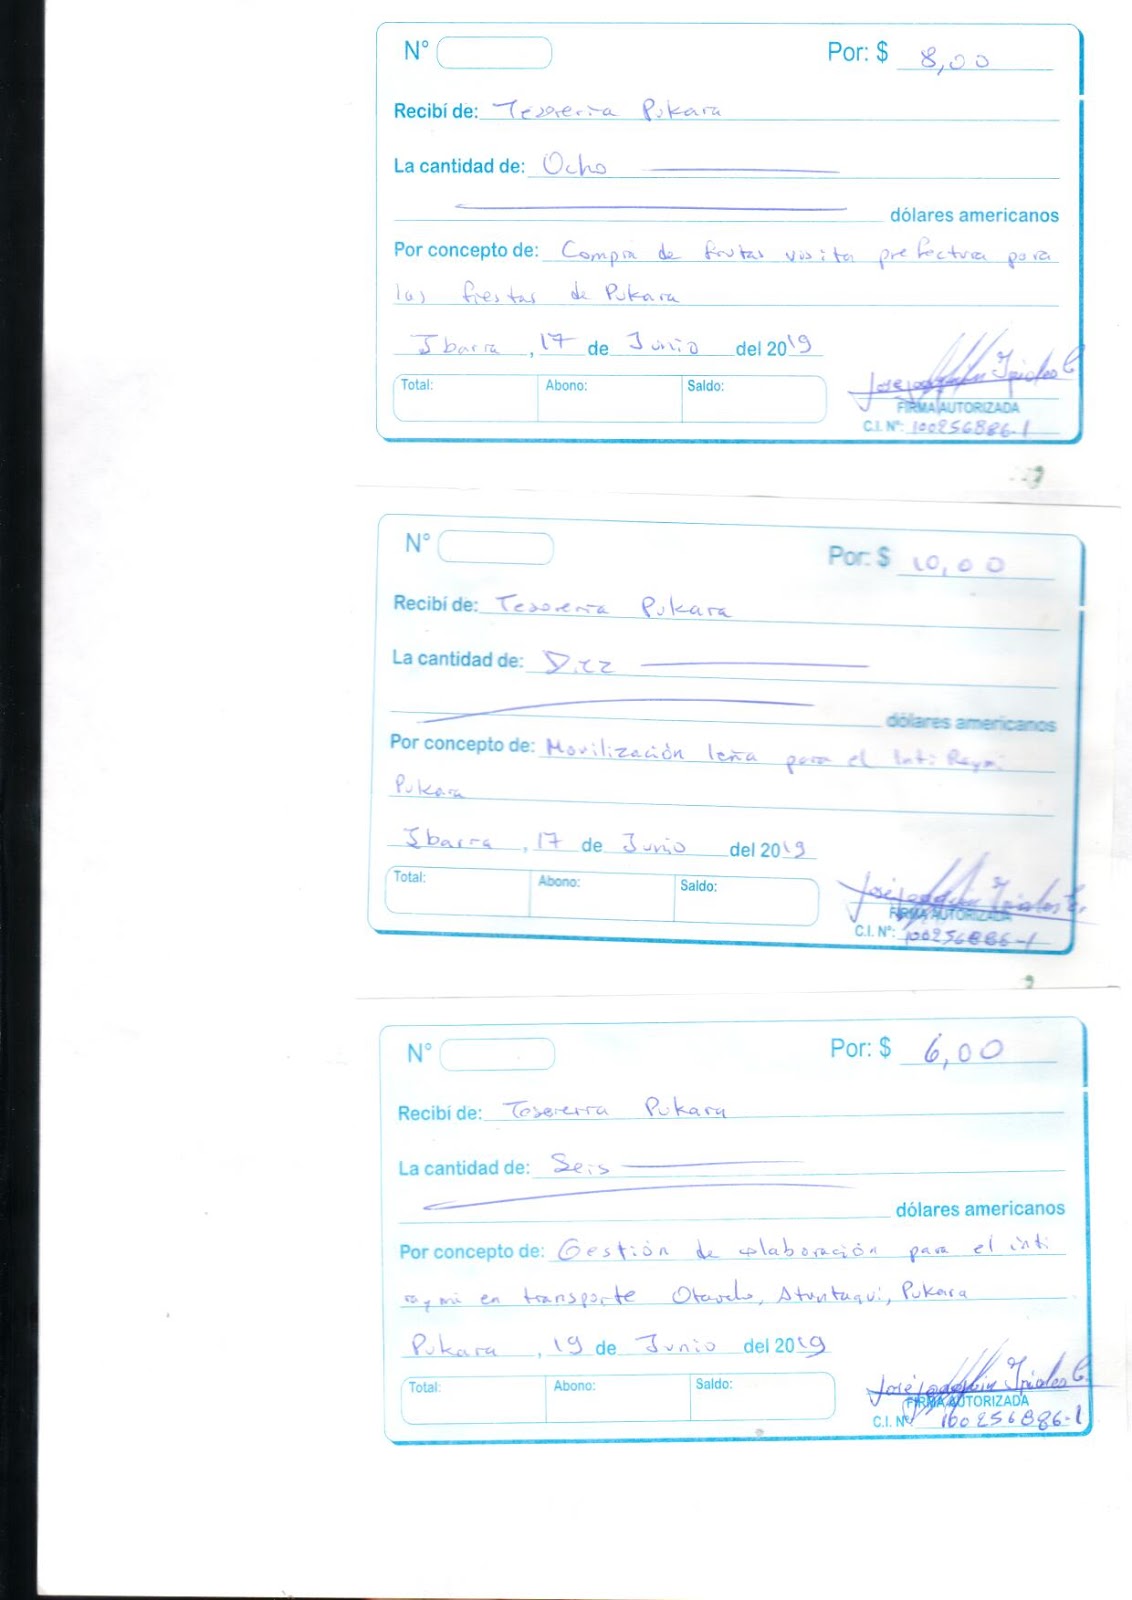 N° Por: $ 8,00
Recibí de: Tesorerria Pukara
La cantidad de: Ocho
dólares americanos
Por concepto de: Compra de frutas visita prefectura para
las fiestas de Pukara
Ibarra, 17 de Junio del 2019
Total: Abono: Saldo:
José Joaquin Ipiales C.
FIRMA AUTORIZADA
C.I. N°: 100256886-1
N° Por: $ 10,00
Recibí de: Tesorerria Pukara
La cantidad de: Diez
dólares americanos
Por concepto de: Movilización leña para el Inti Raymi
Pukara
Ibarra, 17 de Junio del 2019
Total: Abono: Saldo:
José Joaquin Ipiales C.
FIRMA AUTORIZADA
C.I. N°: 100256886-1
N° Por: $ 6,00
Recibí de: Tesorerria Pukara
La cantidad de: Seis
dólares americanos
Por concepto de: Gestión de colaboración para el inti
raymi en transporte Otavalo, Atuntaqui, Pukara
Pukara, 19 de Junio del 2019
Total: Abono: Saldo:
José Joaquin Ipiales C.
FIRMA AUTORIZADA
C.I. N° 100256886-1